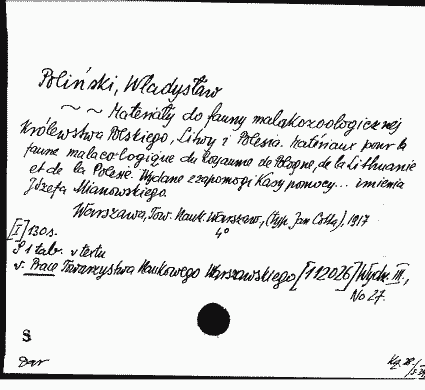 Poliński, Władysław
~ ~ Materiały do fauny malakozoologicznej
Królewstwa Polskiego, Litwy i Polesia. Matériaux pour la
faune malaco-logique du Royaume de Pologne, de la Lithuanie
et de la Polesie. Wydane z zapomogi Kasy pomocy... imienia
Józefa Mianowskiego.
Warszawa, Tow. Nauk. Warszaw., (typ. Jan Cotty), 1917
[I] 130 s. 4°
S 1 tab. v textu
v: Prace Towarzystwa Naukowego Warszawskiego [112026] Wydz. III.,
No 27.
S
Dar